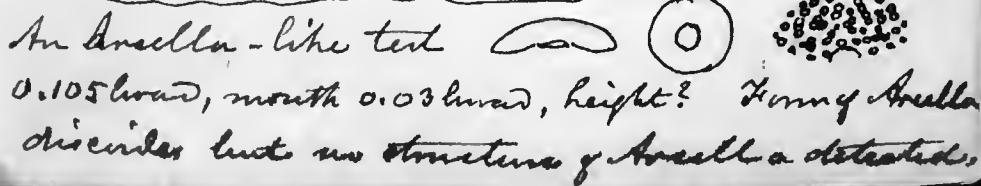 An Arcella-like test
0.105 broad, mouth 0.03 broad, height? Form of Arcella
discoides but no structure of Arcella detected.